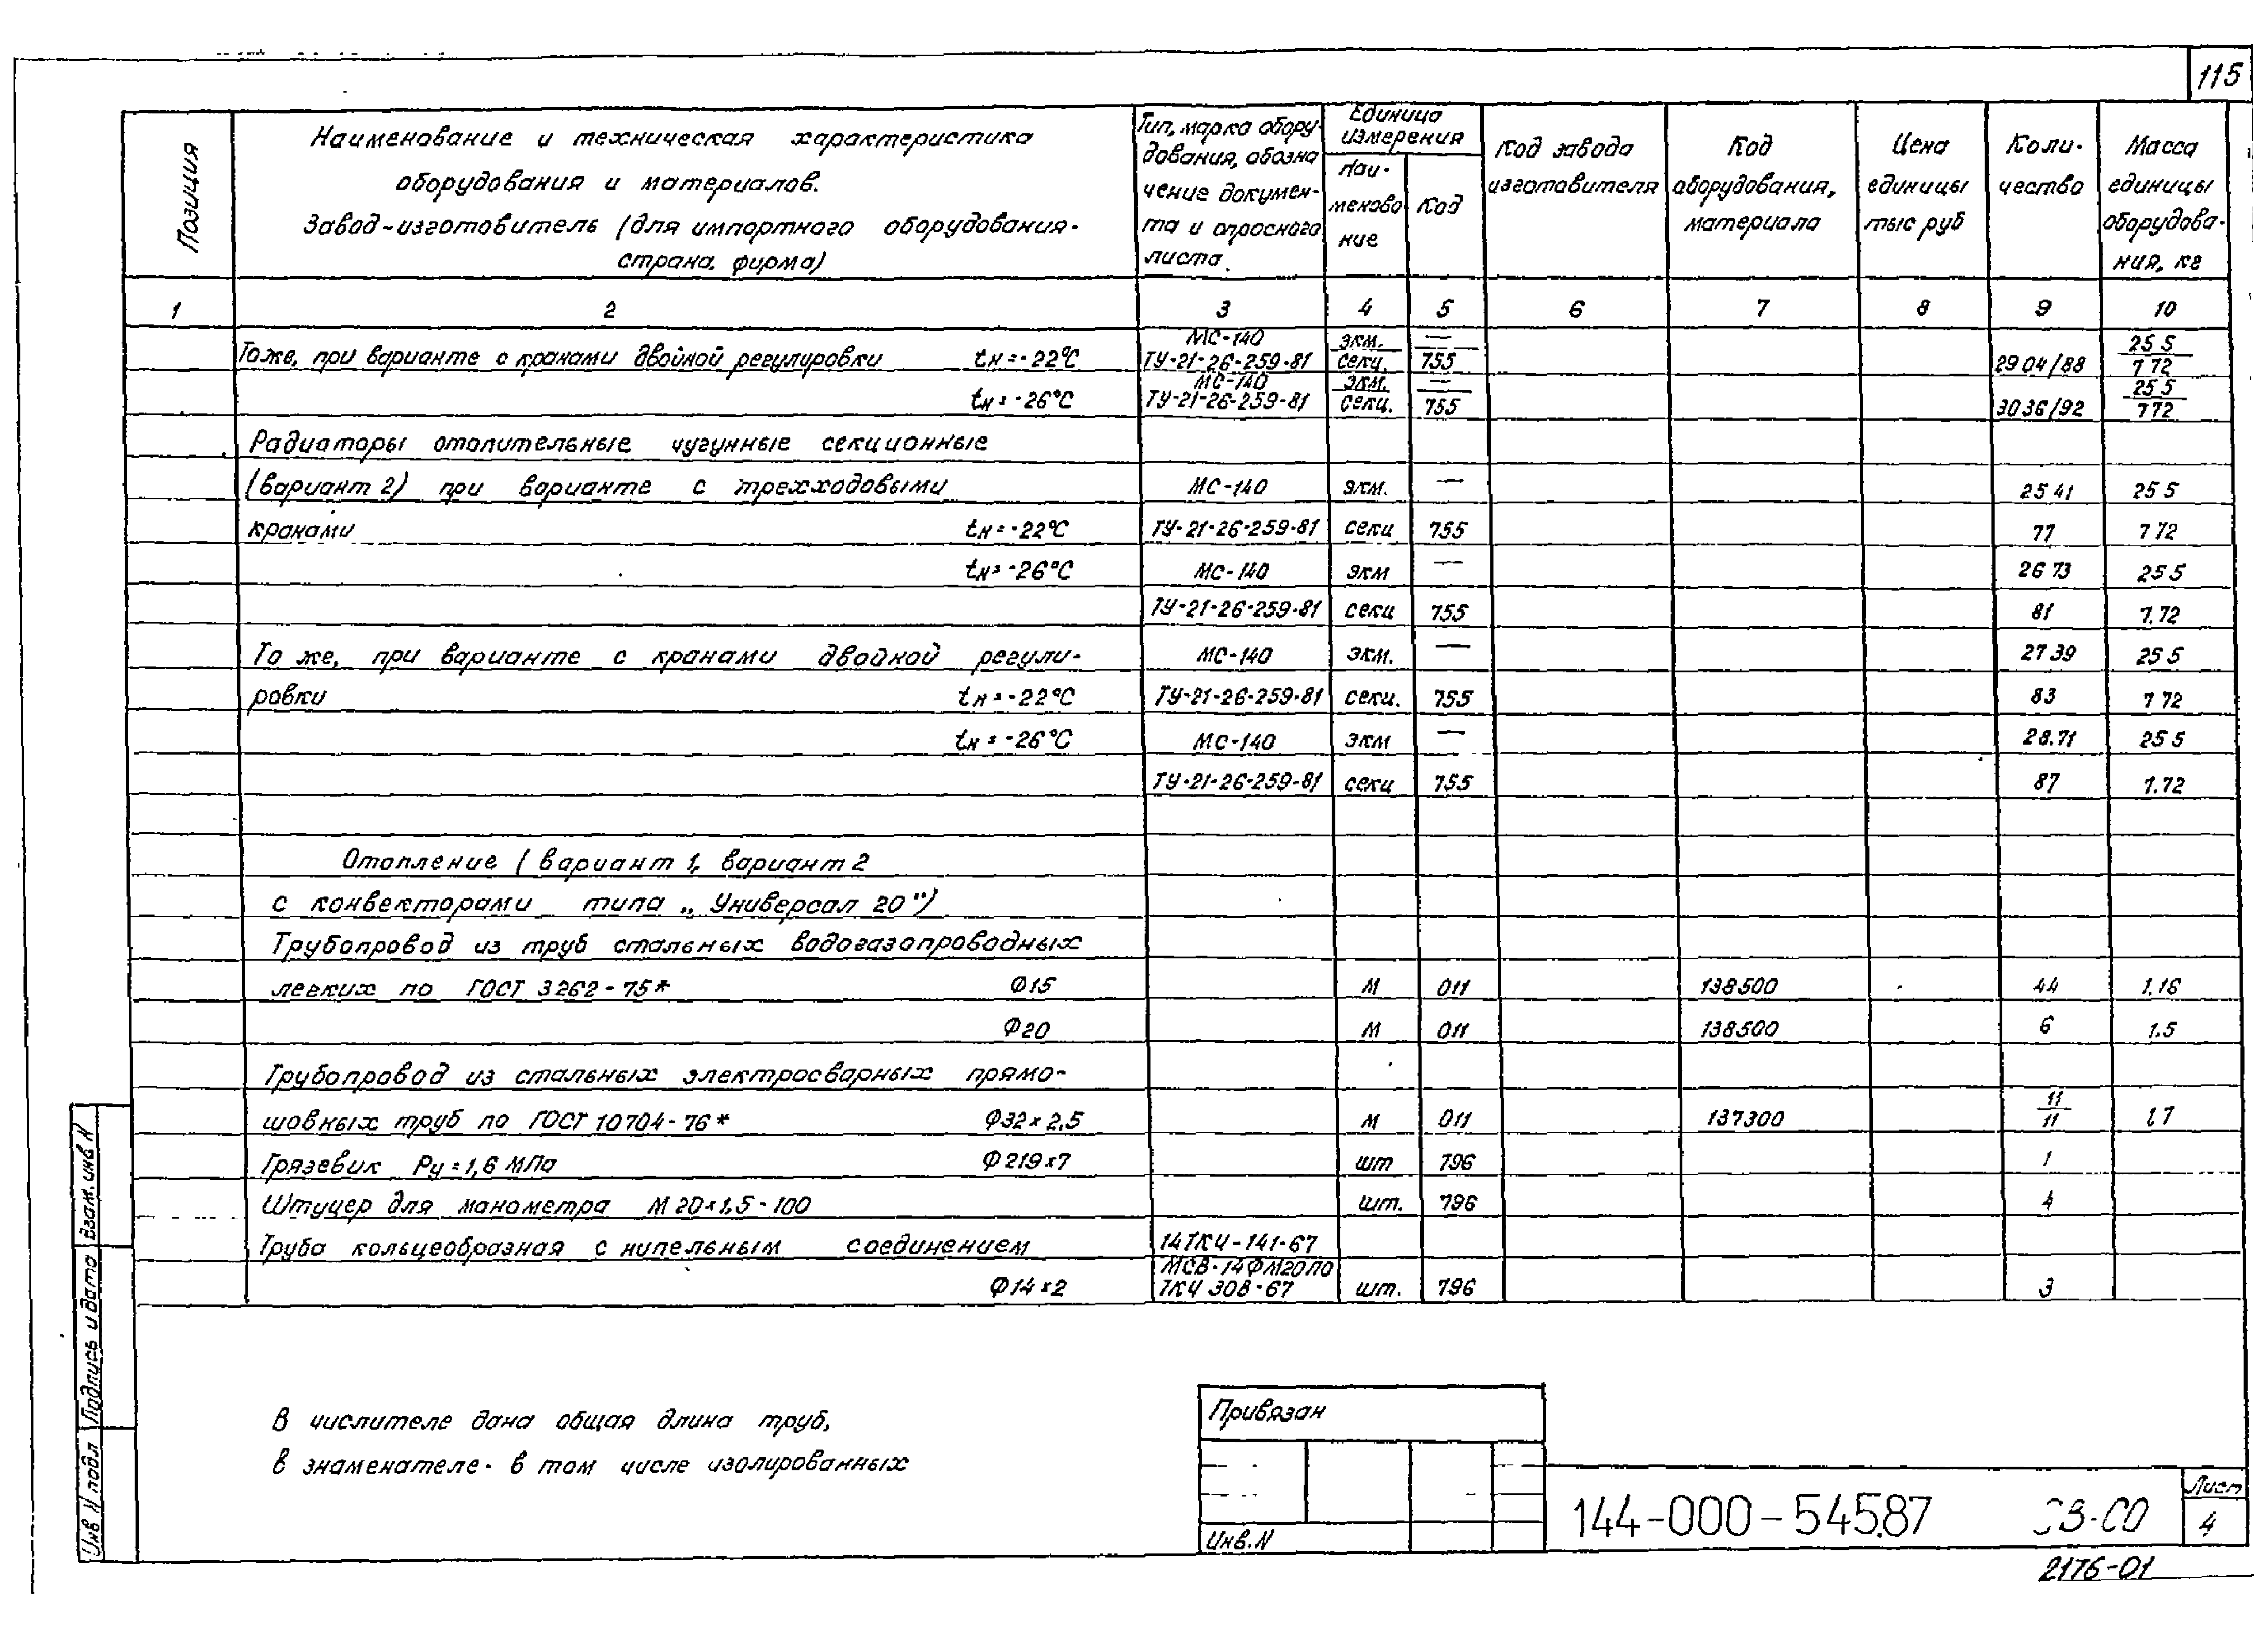 115
Позиция
Наименование и техническая характеристика
оборудования и материалов.
Завод-изготовитель (для импортного оборудования-
страна, фирма)
Тип, марка обору-
дования, обозна
чение докумен-
та и опросного
листа.
Единица
измерения
Наи-
менова
ние
Код
Код завода
изготовителя
Код
оборудования,
материала
Цена
единицы
тыс руб
Коли-
чество
Масса
единицы
оборудова-
ния, кг
1 2 3 4 5 6 7 8 9 10
МС-140 экм. — 25 5
То же, при варианте с кранами двойной регулировки tн=-22°С ТУ-21-26-259-81 секц. 755 29 04/88 7 72
МС-140 экм. — 25 5
tн=-26°С ТУ-21-26-259-81 секц. 755 30 36/92 7 72
Радиаторы отопительные чугунные секционные
(вариант 2) при варианте с трехходовыми МС-140 экм. — 25 41 25 5
кранами tн=-22°С ТУ-21-26-259-81 секц 755 77 7 72
tн=-26°С МС-140 экм — 26 73 25 5
ТУ-21-26-259-81 секц 755 81 7.72
То же, при варианте с кранами двойной регули- МС-140 экм. — 27 39 25 5
ровки tн=-22°С ТУ-21-26-259-81 секц. 755 83 7 72
tн=-26°С МС-140 экм — 28.71 25 5
ТУ-21-26-259-81 секц 755 87 7.72
Отопление (вариант 1, вариант 2
с конвекторами типа „Универсал 20")
Трубопровод из труб стальных водогазопроводных
легких по ГОСТ 3262-75* Ф15 м 011 138500 44 1.16
Ф20 м 011 138500 6 1.5
Трубопровод из стальных электросварных прямо-
шовных труб по ГОСТ 10704-76* Ф32×2,5 м 011 137300 11/11 1 7
Грязевик Ру=1,6 МПа Ф219×7 шт 796 1
Штуцер для манометра М20×1,5-100 шт. 796 4
Труба кольцеобразная с нипельным соединением 14ТКЧ-141-67
МСВ-14ФМ20ПО
Ф14×2 ТКЧ 308-67 шт. 796 3
В числителе дана общая длина труб,
в знаменателе- в том числе изолированных
Привязан
Инв.N
144-000-545.87
СО
Лист
4
2176-01
Взам.инв N
Подпись и дата
Инв N подл